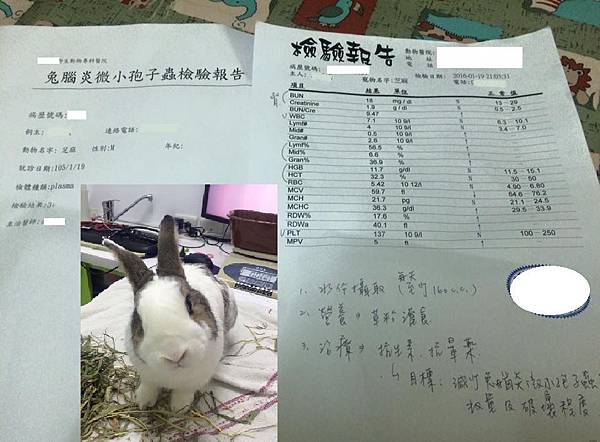 學生動物專科醫院
兔腦炎微小孢子蟲檢驗報告
病歷號碼:
飼主: 連絡電話:
動物名字: 芝麻 性別:M 年紀:
就診日期:105/1/19
檢體種類:plasma
檢驗結果:3+
主治醫師:
檢驗報告
動物醫院:
地 址
電 話
病歷號碼:
主人: 寵物名字:芝麻 檢驗日期 2016-01-19 21:03:31
電話:
項目 結果 單位 正常值
BUN 18 mg / dl N 13 - 29
Creatinine 1.9 mg / dl N 0.5 - 2.5
BUN/Cre 9.47 ↑
WBC 7.1 10 9/l N 6.3 - 10.1
Lymf# 4 10 9/l N 3.4 - 7.0
Mid# 0.5 10 9/l ↑
Gran# 2.6 10 9/l ↑
Lymf% 56.5 % ↑
Mid% 6.6 % ↑
Gran% 36.9 % ↑
HGB 11.7 g/dl N 11.5 - 15.1
HCT 32.3 % N 30 - 50
RBC 5.42 10 12/l N 4.90 - 6.80
MCV 59.7 fl 64.6 - 76.2
MCH 21.7 pg N 21.1 - 24.5
MCHC 36.3 g/dl ↑ 29.5 - 33.9
RDW% 17.6 % ↑
RDWa 40.1 fl ↑
PLT 137 10 9/l N 100 - 250
MPV 5 fl ↑
每天
1. 水份攝取 (至少160c.c.)
2. 營養 → 草粉灌食
3. 治療 → 抗生素、抗暈藥
↳ 目標: 減少兔腦炎微小孢子蟲
數量及破壞程度